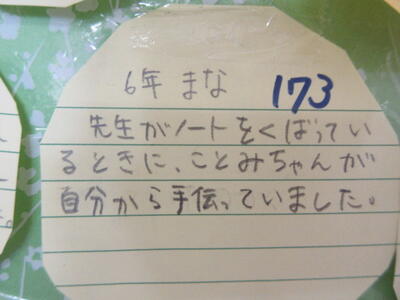 6年 まな 173
先生がノートをくばってい
るときに、ことみちゃんが
自分から手伝っていました。